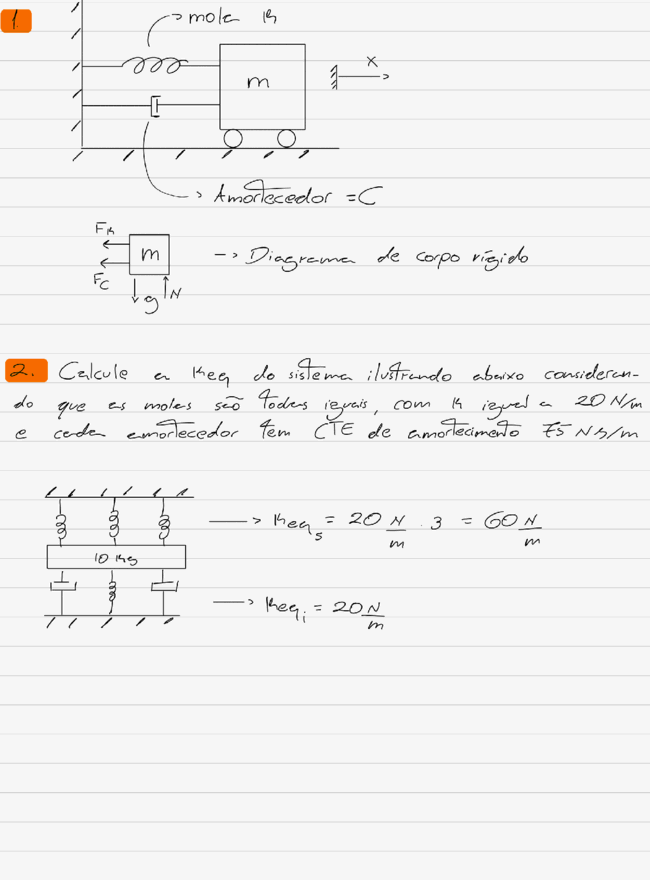 1
mola k
m
x
Amortecedor = C
Fk
m
Fc
g
N
-> Diagrama de corpo rígido
2. Calcule a Keq do sistema ilustrando abaixo consideran-
do que as molas são todas iguais, com k igual a 20 N/m
e cada amortecedor tem CTE de amortecimento 75 Ns/m
Keq s = 20 N/m . 3 = 60 N/m
10 Kg
Keq i = 20 N/m